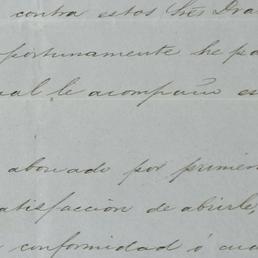 contra estos Sres Dra
portunamente he pa
ual le acompaño es
abonado por primer
atisfaccion de abrirle,
conformidad ó cua